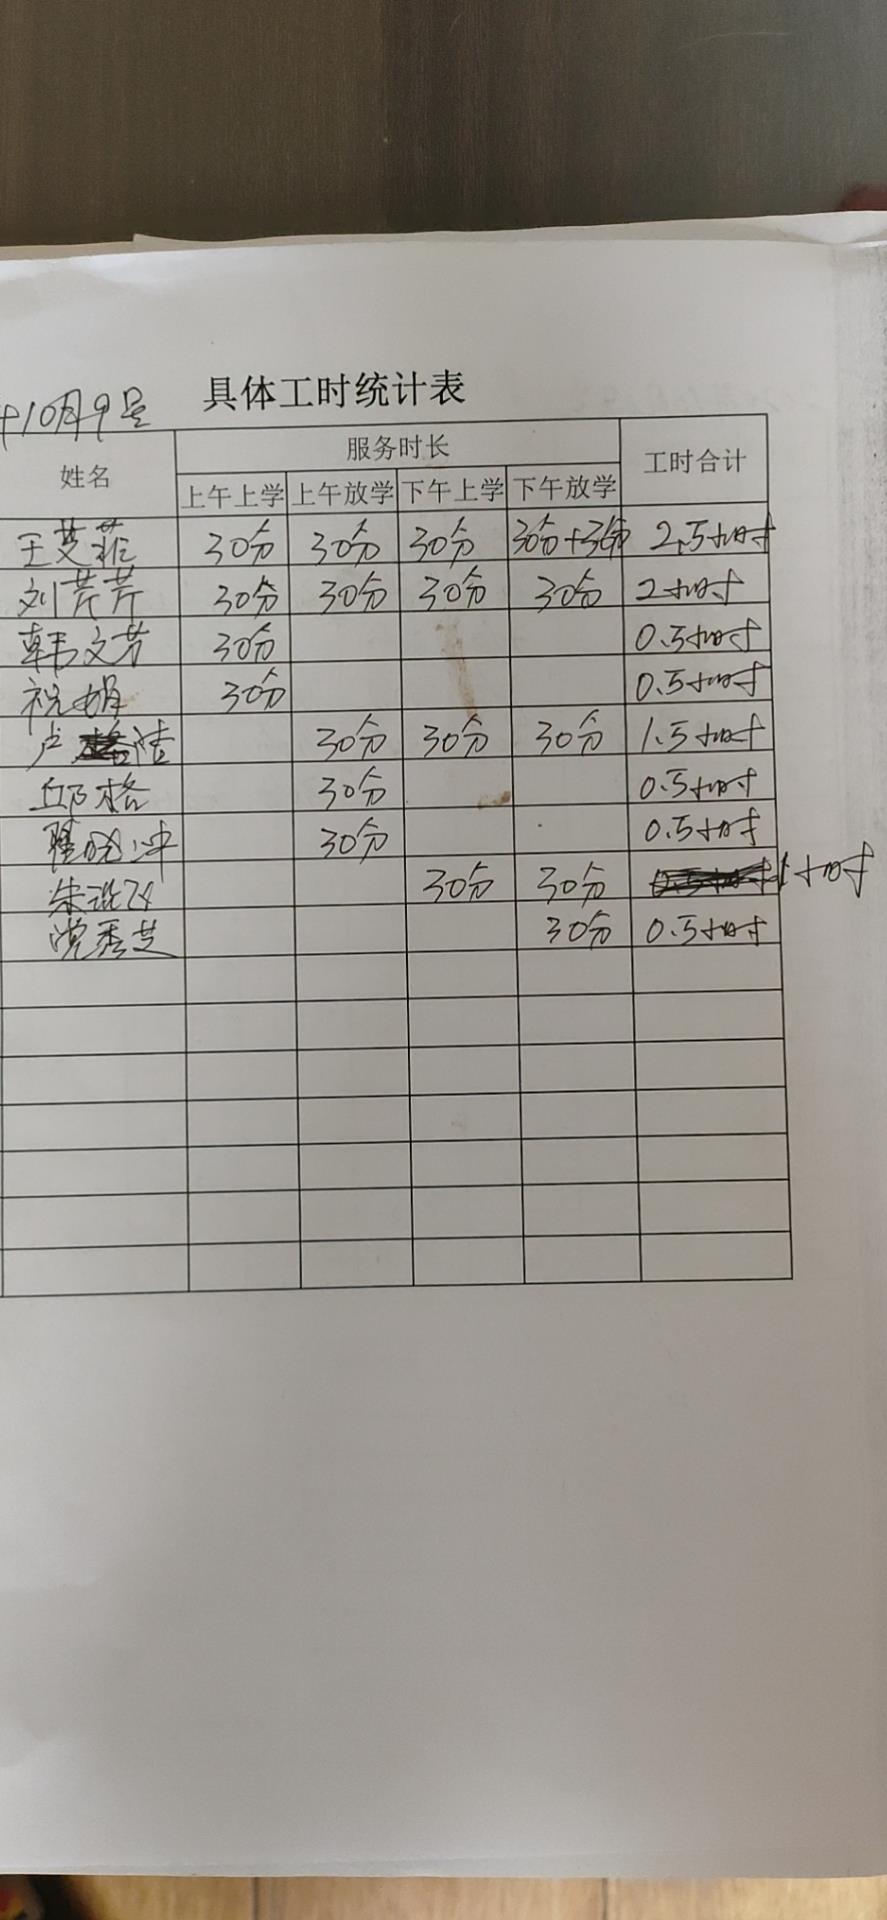 具体工时统计表
年10月9号
姓名 服务时长 工时合计
上午上学 上午放学 下午上学 下午放学
王芰菲 30分 30分 30分 30分+30分 2.5小时
刘芹芹 30分 30分 30分 30分 2小时
韩文芳 30分 0.5小时
祝娟 30分 0.5小时
卢 30分 30分 30分 1.5小时
邱格 30分 0.5小时
翟晓冲 30分 0.5小时
朱 30分 30分 1小时
党秀芝 30分 0.5小时